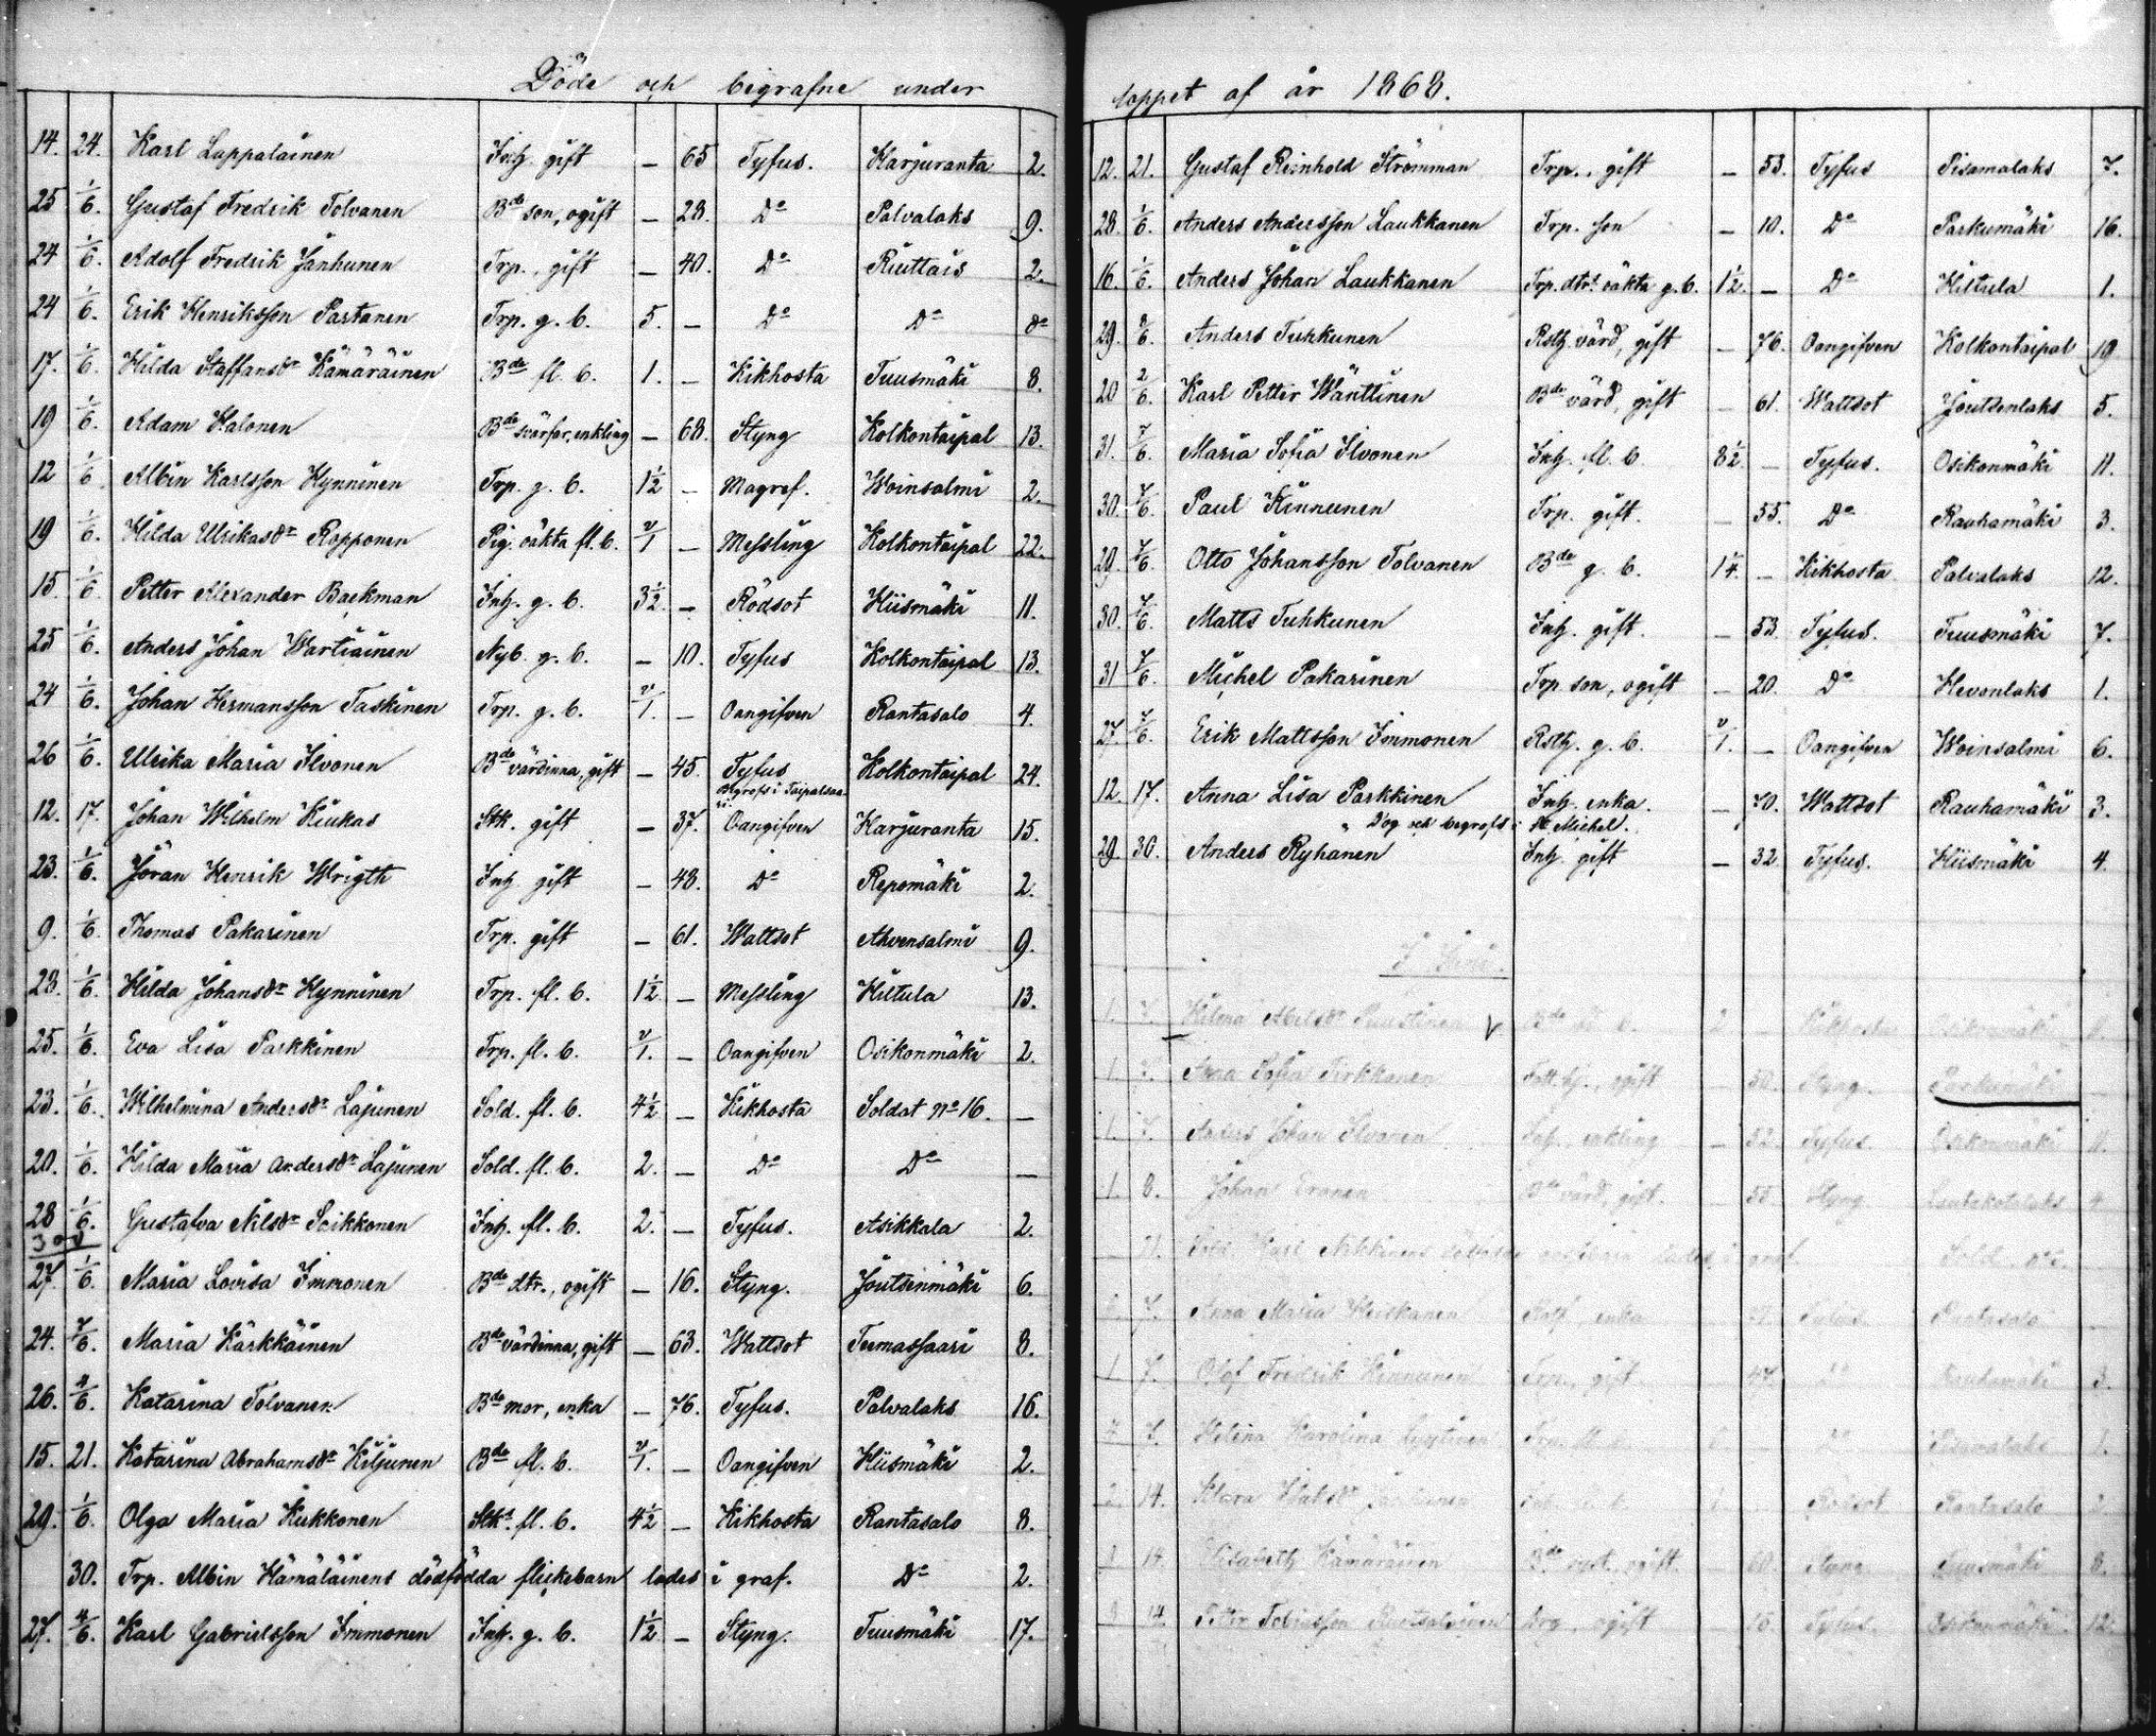 Döde och begrafne under
14. 24. Karl Lappalainen Inh. gift — 65 Tyfus. Harjuranta 2.
25 1/6. Gustaf Fredrik Tolvanen Bde son, ogift — 28. Do Palvalaks 9.
24 1/6. Adolf Fredrik Janhunen Trp., gift — 40. Do Riuttais 2.
24 1/6. Erik Henriksson Partanen Trp. g. b. 5. — Do Do do
17. 1/6. Hilda Staffansdr Kämäräinen Bde fl. b. 1. — Kikhosta Tuusmäki 8.
19 1/6. Adam Halonen Bde svärfar, enkling — 68. Styng Kolkontaipal 13.
12 1/6 Albin Karlsson Hynninen Trp. g. b. 1 1/2 — Magref. Woinsalmi 2.
19 1/6. Hilda Ulrikasdr Ropponen Pig. oäkta fl. b. v/1 — Messling Kolkontaipal 22.
15. 1/6. Petter Alexander Backman Inh. g. b. 3 1/2. — Rödsot Hiismäki 11.
25 1/6. Anders Johan Wartiainen Nyb. g. b. — 10. Tyfus Kolkontaipal 13.
24 1/6. Johan Hermansson Taskinen Trp. g. b. v/1. — Oangifven Rantasalo 4.
26 1/6. Ulrika Maria Ilvonen Bde värdinna, gift — 45. Tyfus Kolkontaipal 24.
Begrofs i Taipalsaari.
12. 17. Johan Wilhelm Kiukas Stk. gift — 37. Oangifven Harjuranta 15.
23. 1/6. Jöran Henrik Wrigth Inh. gift — 48. Do Repomäki 2.
9. 1/6. Thomas Pakarinen Trp. gift — 61. Wattsot Ahvensalmi 9.
23. 1/6. Hilda Johansdr Hynninen Trp. fl. b. 1 1/2. — Messling Hiltula 13.
25. 1/6. Eva Lisa Parkkinen Trp. fl. b. v/1. — Oangifven Osikonmäki 2.
23. 1/6. Wilhelmina Andersdr Lajunen Sold. fl. b. 4 1/2 — Kikhosta Soldat No 16. —
20. 1/6. Hilda Maria Andersdr Lajunen Sold. fl. b. 2. — Do Do —
28 1/6. Gustafva Nilsdr Seikkonen Inh. fl. b. 2. — Tyfus. Asikkala 2.
300
27. 1/6. Maria Lovisa Immonen Bde dtr., ogift — 16. Styng. Joutsenmäki 6.
24. 7/6. Maria Kärkkäinen Bde värdinna, gift — 63. Wattsot Tuemassaari 8.
26. 4/6. Katarina Tolvanen Bde mor, enka — 76. Tyfus. Palvalaks 16.
15. 21. Katarina Abrahamsdr Kiljunen Bde fl. b. v/1. — Oangifven Hiismäki 2.
29. 1/6. Olga Maria Kukkonen Stks. fl. b. 4 1/2 — Kikhosta Rantasalo 8.
30. Trp. Albin Hämäläinens dödfödda flickebarn lades i graf. Do 2.
27. 4/6. Karl Gabrielsson Immonen Inh. g. b. 1 1/2 — Styng. Tuusmäki 17.
loppet af år 1868.
12. 21. Gustaf Reinhold Strömman Trp., gift — 53. Tyfus Pisamalaks 7.
28. 1/6. Anders Andersson Laukkanen Trp. son — 10. Do Parkumäki 16.
16. 1/6. Anders Johan Laukkanen Trp. dtrs oäkta g. b. 1 1/2. — Do Hiltula 1.
29. 2/6. Anders Tuhkunen Rsth. värd, gift — 76. Oangifven Kolkontaipal 19
20 2/6. Karl Petter Wänttinen Bde värd, gift — 61. Wattsot Joutsenlaks 5.
31. 7/6. Maria Sofia Ilvonen Inh. fl. b. 8 1/2. — Tyfus. Osikonmäki 11.
30. 7/6. Paul Kinnunen Trp. gift. — 55. Do Rauhamäki 3.
29. 7/6. Otto Johansson Tolvanen Bde g. b. 1/4. — Kikhosta Palvalaks 12.
30. 7/6. Matts Tuhkunen Inh. gift. — 53. Tyfus. Tuusmäki 7.
31 7/6. Michel Pakarinen Trp son, ogift — 20. Do Hevonlaks 1.
27. 7/6. Erik Mattsson Immonen Rsth. g. b. v/1. — Oangifven Woinsalmi 6.
12. 17. Anna Lisa Parkkinen Inh. enka. — 70. Wattsot Rauhamäki 3.
Dog och begrofs i St. Michel.
29. 30. Anders Ryhanen Inh. gift — 32 Tyfus. Hiismäki 4.
I Juni.
1. 7. Abelsdr Puustinen Bde 2. — Kikhosta Osikonmäki
1. 7. Anna Sofia Tirkkonen ogift — 50. Styng. Parkumäki
1. 7. Anders Johan Ilvonen Inh. enkling — 52. Tyfus Osikonmäki 11.
1. 8. Johan Eronen Bde värd, gift. — 55. Styng. 4
— 21. Sold. Karl lades i graf. Sold.
7. Anna Maria Heiskanen enka Tyfus Rantasalo
1. 7. Olof Fredrik Kinnunen Trp., gift. 47. Do Rauhamäki 3.
7. Helena Karolina Do Pisamalaks 1.
2. 14. Rödsot Rantasalo 2.
14. Elisabeth Kämäräinen Bde ogift 60. Styng. Tuusmäki 8.
14. Petter Tobiasson ogift Tyfus. Osikonmäki 12.